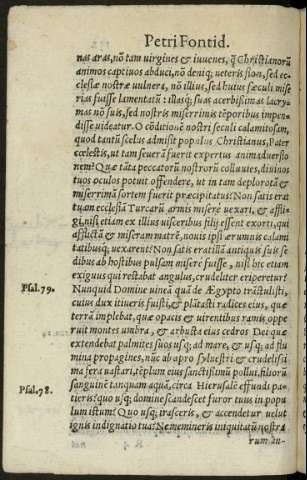 Petri Fontid.
nas aras, nõ tam uirgines & iuuenes, q̃ Christianorũ
animos captiuos abduci, nõ deniq; ueteris sion, sed ec-
clesiæ nostræ uulnera, nõ illius, sed huius sæculi mise
rias fuisse lamentatũ: illasq; suas acerbissimas lacry-
mas nõ suis, sed nostris miserrimis tẽporibus impen-
disse uideatur. O cõditionẽ nostri seculi calamitosam,
quod tantũ scelus admisit populus Christianus, Pater
cœlestis, ut tam seuerã fuerit expertus animaduersio
nem? Quæ tãta peccatorũ nostrorũ colluuies, diuinos
tuos oculos potuit offendere, ut in tam deploratã &
miserrimã sortem fuerit præcipitatus? Non satis erat
tuam ecclesiã Turcarũ armis miserè uexari, & affli-
gi, nisi etiam ex illius uisceribus filij essent exorti, qui
afflictã & miseram matrẽ, nouis ipsi ærumnis calami
tatibusq; uexarent? Non satis erat illã antiquis suis se
dibus ab hostibus pulsam miserè fuisse, nisi hic etiam
exiguus qui restabat angulus, crudeliter eriperetur?
Psal. 79. Nunquid Domine uineã quã de Ægypto trãstulisti,
cuius dux itineris fuisti, & plãtasti radices eius, quæ
terrã implebat, quæ opacis & uirentibus ramis oppe
ruit montes umbra, & arbusta eius cedros Dei: quæ
extendebat palmites suos usq; ad mare, & usq; ad flu
mina propagines, nũc ab apro syluestri & crudelissi
ma fera uastari, tẽplum eius sanctissimũ pollui, filiorũ
Psal. 78. sanguinẽ tanquam aquã, circa Hierusalẽ effundi pa-
tieris? quo usq; domine scandescet furor tuus in popu
lum istum? Quo usq; irasceris, & accendetur uelut
ignis indignatio tua? Ne memineris iniquitatũ nostra
rum an-